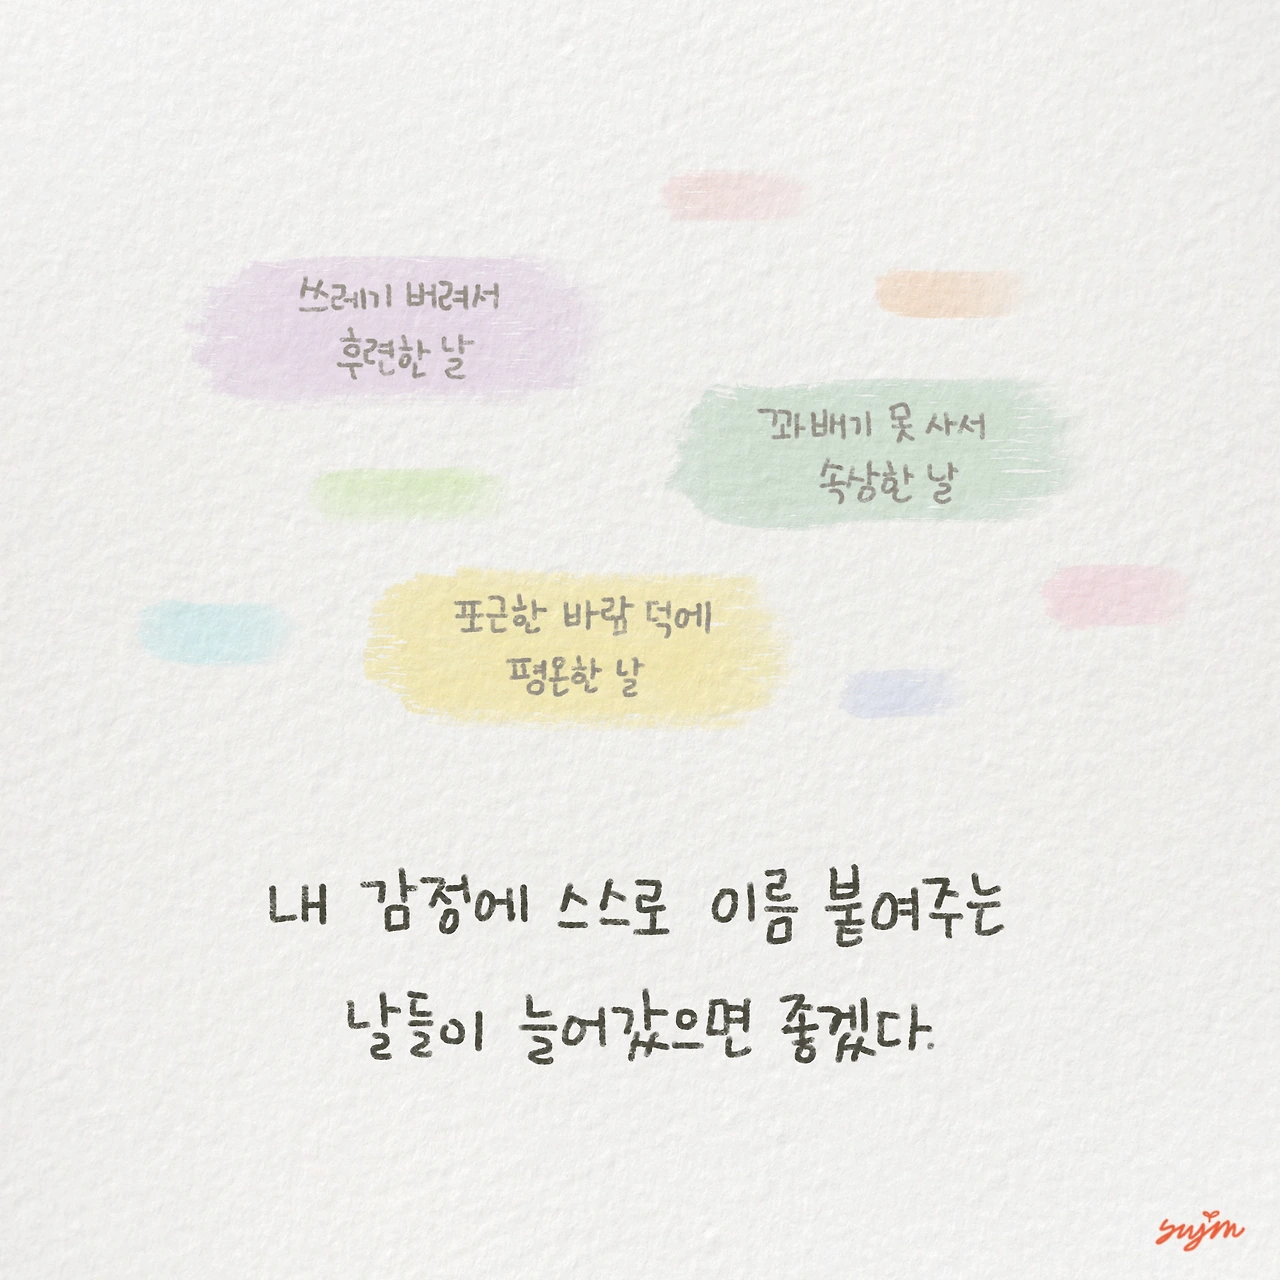 쓰레기 버려서
후련한 날
꽈배기 못 사서
속상한 날
포근한 바람 덕에
평온한 날
내 감정에 스스로 이름 붙여주는
날들이 늘어갔으면 좋겠다.
sujm